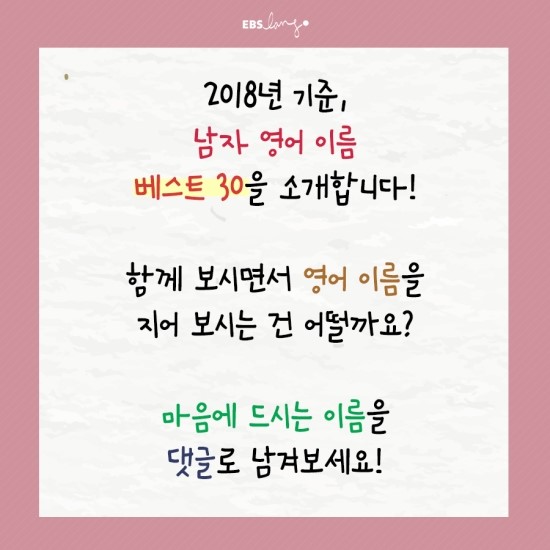 EBS lang
2018년 기준,
남자 영어 이름
베스트 30을 소개합니다!
함께 보시면서 영어 이름을
지어 보시는 건 어떨까요?
마음에 드시는 이름을
댓글로 남겨보세요!